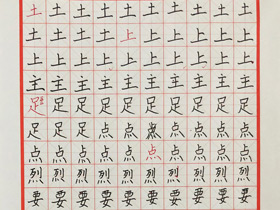 土土土土土土土土土土
土土土土上上上上上上
上上上上上上上上上上
主主主主主主主主主主
足足足足足足足足足足
足足足点点点点点点点
点点点点点点点点点点
烈烈烈烈烈烈烈烈烈烈
要要要要要要要要要要